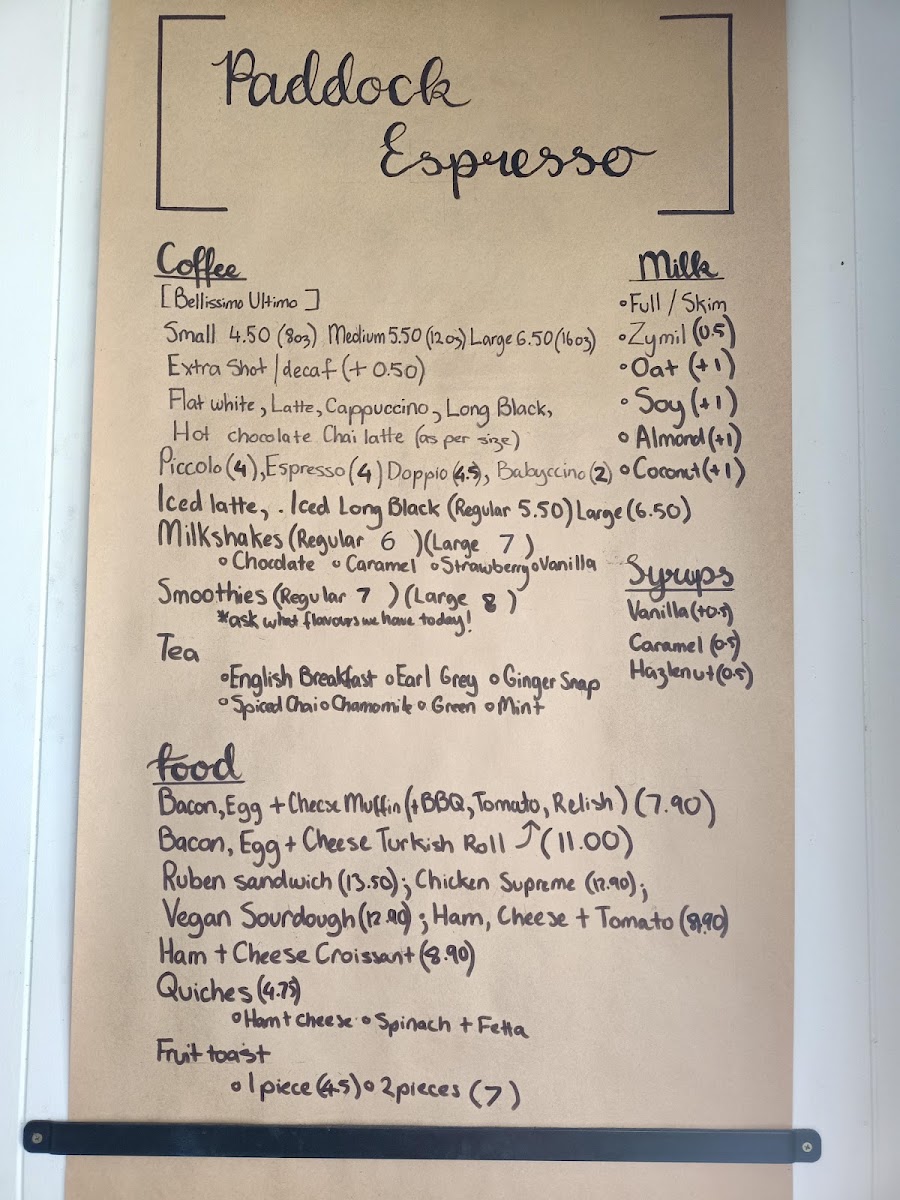 Paddock
Espresso
Coffee
[Bellissimo Ultimo]
Small 4.50 (8oz) Medium 5.50 (12oz) Large 6.50 (16oz)
Extra Shot / decaf (+ 0.50)
Flat white, Latte, Cappuccino, Long Black,
Hot chocolate Chai latte (as per size)
Piccolo (4), Espresso (4) Doppio (4.5), Babyccino (2)
Iced latte, . Iced Long Black (Regular 5.50) Large (6.50)
Milkshakes (Regular 6 ) (Large 7 )
o Chocolate o Caramel o Strawberry o Vanilla
Smoothies (Regular 7 ) (Large 8 )
*ask what flavours we have today!
Tea
o English Breakfast o Earl Grey o Ginger Snap
o Spiced Chai o Chamomile o Green o Mint
Milk
o Full / Skim
o Zymil (0.5)
o Oat (+1)
o Soy (+1)
o Almond (+1)
o Coconut (+1)
Syrups
Vanilla (+0.5)
Caramel (0.5)
Hazlenut (0.5)
Food
Bacon, Egg + Cheese Muffin (+ BBQ, Tomato, Relish) (7.90)
Bacon, Egg + Cheese Turkish Roll ↑ (11.00)
Ruben sandwich (13.50); Chicken Supreme (12.90);
Vegan Sourdough (12.90); Ham, Cheese + Tomato (8.90)
Ham + Cheese Croissant (8.90)
Quiches (4.75)
o Ham + cheese o Spinach + Fetta
Fruit toast
o 1 piece (4.5) o 2 pieces (7)